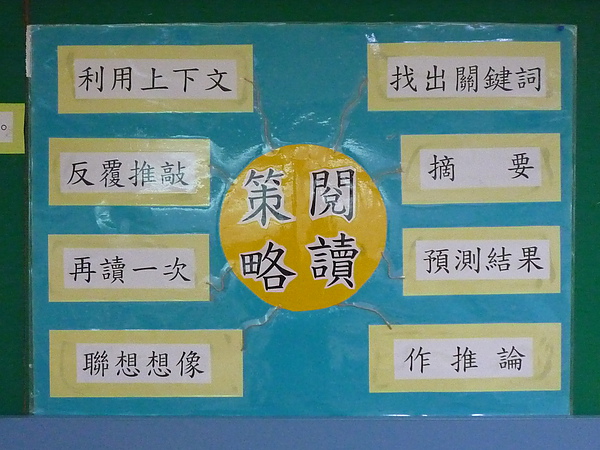 閱讀
策略
找出關鍵詞
摘要
預測結果
作推論
利用上下文
反覆推敲
再讀一次
聯想想像
。